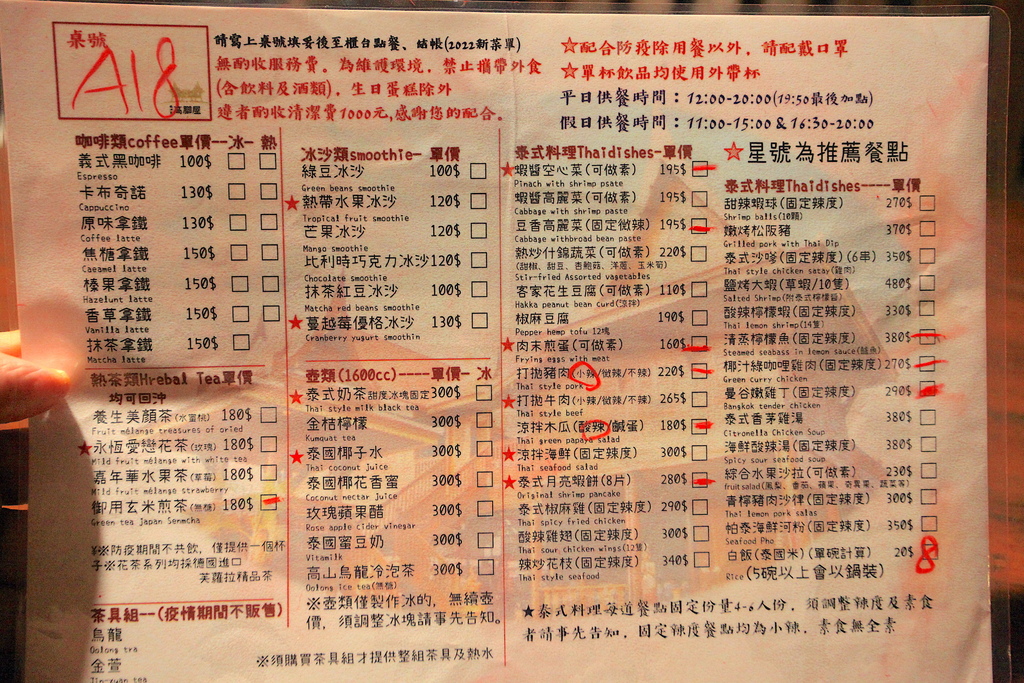 桌號
A18
高腳屋
請寫上桌號填妥後至櫃台點餐、結帳(2022新菜單)
無酌收服務費。為維護環境，禁止攜帶外食
(含飲料及酒類)，生日蛋糕除外
違者酌收清潔費1000元,感謝您的配合。
☆配合防疫除用餐以外，請配戴口罩
☆單杯飲品均使用外帶杯
平日供餐時間：12:00-20:00(19:50最後加點)
假日供餐時間：11:00-15:00 & 16:30-20:00
咖啡類coffee單價--冰-熱
義式黑咖啡 100$
Espresso
卡布奇諾 130$
Cappuccino
原味拿鐵 130$
Coffee latte
焦糖拿鐵 150$
Caeamel latte
榛果拿鐵 150$
Hazelunt latte
香草拿鐵 150$
Vanilla latte
抹茶拿鐵 150$
Matcha latte
熱茶類Hrebal Tea單價
均可回沖
養生美顏茶(水蜜桃) 180$
Fruits mélange treasures of dried
★永恆愛戀花茶(玫瑰) 180$
Mild fruit mélange with white tea
嘉年華水果茶(草莓) 180$
Mild fruit mélange strawberry
御用玄米煎茶(無糖) 180$
Green tea japan Senmcha
※防疫期間不共飲，僅提供一個杯
子※花茶系列均採德國進口
芙蘿拉精品茶
茶具組--(疫情期間不販售)
烏龍
Oolong tra
金萱
Jin-yuan tea
冰沙類smoothie- 單價
綠豆冰沙 100$
Green beans smoothie
★熱帶水果冰沙 120$
Tropical fruit smoothie
芒果冰沙 120$
Mango smoothie
比利時巧克力冰沙120$
Chocolate smoothie
抹茶紅豆冰沙 100$
Matcha red beans smoothie
★蔓越莓優格冰沙 130$
Cranberry yugurt smoothie
壺類(1600cc)----單價- 冰
★泰式奶茶甜度冰塊固定300$
Thai style milk black tea
金桔檸檬 300$
Kumquat tea
★泰國椰子水 300$
Thai coconut juice
泰國椰花香蜜 300$
Coconut nectar juice
玫瑰蘋果醋 300$
Rose apple cider vinegar
泰國蜜豆奶 300$
Vitamilk
高山烏龍冷泡茶 300$
Oolong ice tea(無糖)
※壺類僅製作冰的，無續壺
價，須調整冰塊請事先告知。
※須購買茶具組才提供整組茶具及熱水
泰式料理Thaidishes-單價
★蝦醬空心菜(可做素) 195$
Pinach with shrimp psate
蝦醬高麗菜(可做素) 195$
Cabbage with shrimp paste
豆香高麗菜(固定微辣) 195$
Cabbage withbroad bean paste
熱炒什錦蔬菜(可做素) 220$
(甜椒、甜豆、杏鮑菇、洋蔥、玉米筍)
Stir-fried Assorted vagetables
客家花生豆腐(可做素) 110$
Hakka peanut bean curd(涼拌)
椒麻豆腐 190$
Pepper hemp tofu 12塊
★肉末煎蛋(可做素) 160$
Frying eggs with meat
打拋豬肉(小辣/微辣/不辣) 220$
Thai style pork
★打拋牛肉(小辣/微辣/不辣) 265$
Thai style beef
涼拌木瓜(酸辣/鹹蛋) 180$
Thai green papaya salad
★涼拌海鮮(固定辣度) 300$
Thai seafood salad
★泰式月亮蝦餅(8片) 280$
Original shrimp pancake
泰式椒麻雞(固定辣度) 290$
Thai spicy fried chicken
酸辣雞翅(固定辣度) 300$
Thai sour chicken wings(12隻)
辣炒花枝(固定辣度) 340$
Thai style seafood
☆星號為推薦餐點
泰式料理Thaidishes----單價
甜辣蝦球(固定辣度) 270$
Shrimp balls(10顆)
嫩烤松阪豬 370$
Grilled pork with Thai Dip
泰式沙嗲(固定辣度)(6串) 350$
Thai style chicken satay(雞肉)
鹽烤大蝦(草蝦/10隻) 480$
Salted Shrimp(附泰式檸檬醬)
酸辣檸檬蝦(固定辣度) 330$
Thai lemon shrimp(14隻)
清蒸檸檬魚(固定辣度) 380$
Steamed seabass in lemon sauce(鱸魚)
椰汁綠咖哩雞肉(固定辣度)270$
Green curry chicken
曼谷嫩雞丁(固定辣度) 290$
Bangkok tender chicken
泰式香茅雞湯 380$
Citronella Chicken Soup
海鮮酸辣湯(固定辣度) 380$
Spicy sour seafood soup
綜合水果沙拉(可做素) 230$
fruit salad(鳳梨、番茄、蘋果、奇異果、蔬菜等)
青檸豬肉沙律(固定辣度) 300$
Thai lemon pork salas
帕泰海鮮河粉(固定辣度) 350$
Seafood Pho
白飯(泰國米)(單碗計算) 20$ 8
Rice(5碗以上會以鍋裝)
★泰式料理每道餐點固定份量4-6人份，須調整辣度及素食
者請事先告知，固定辣度餐點均為小辣，素食無全素